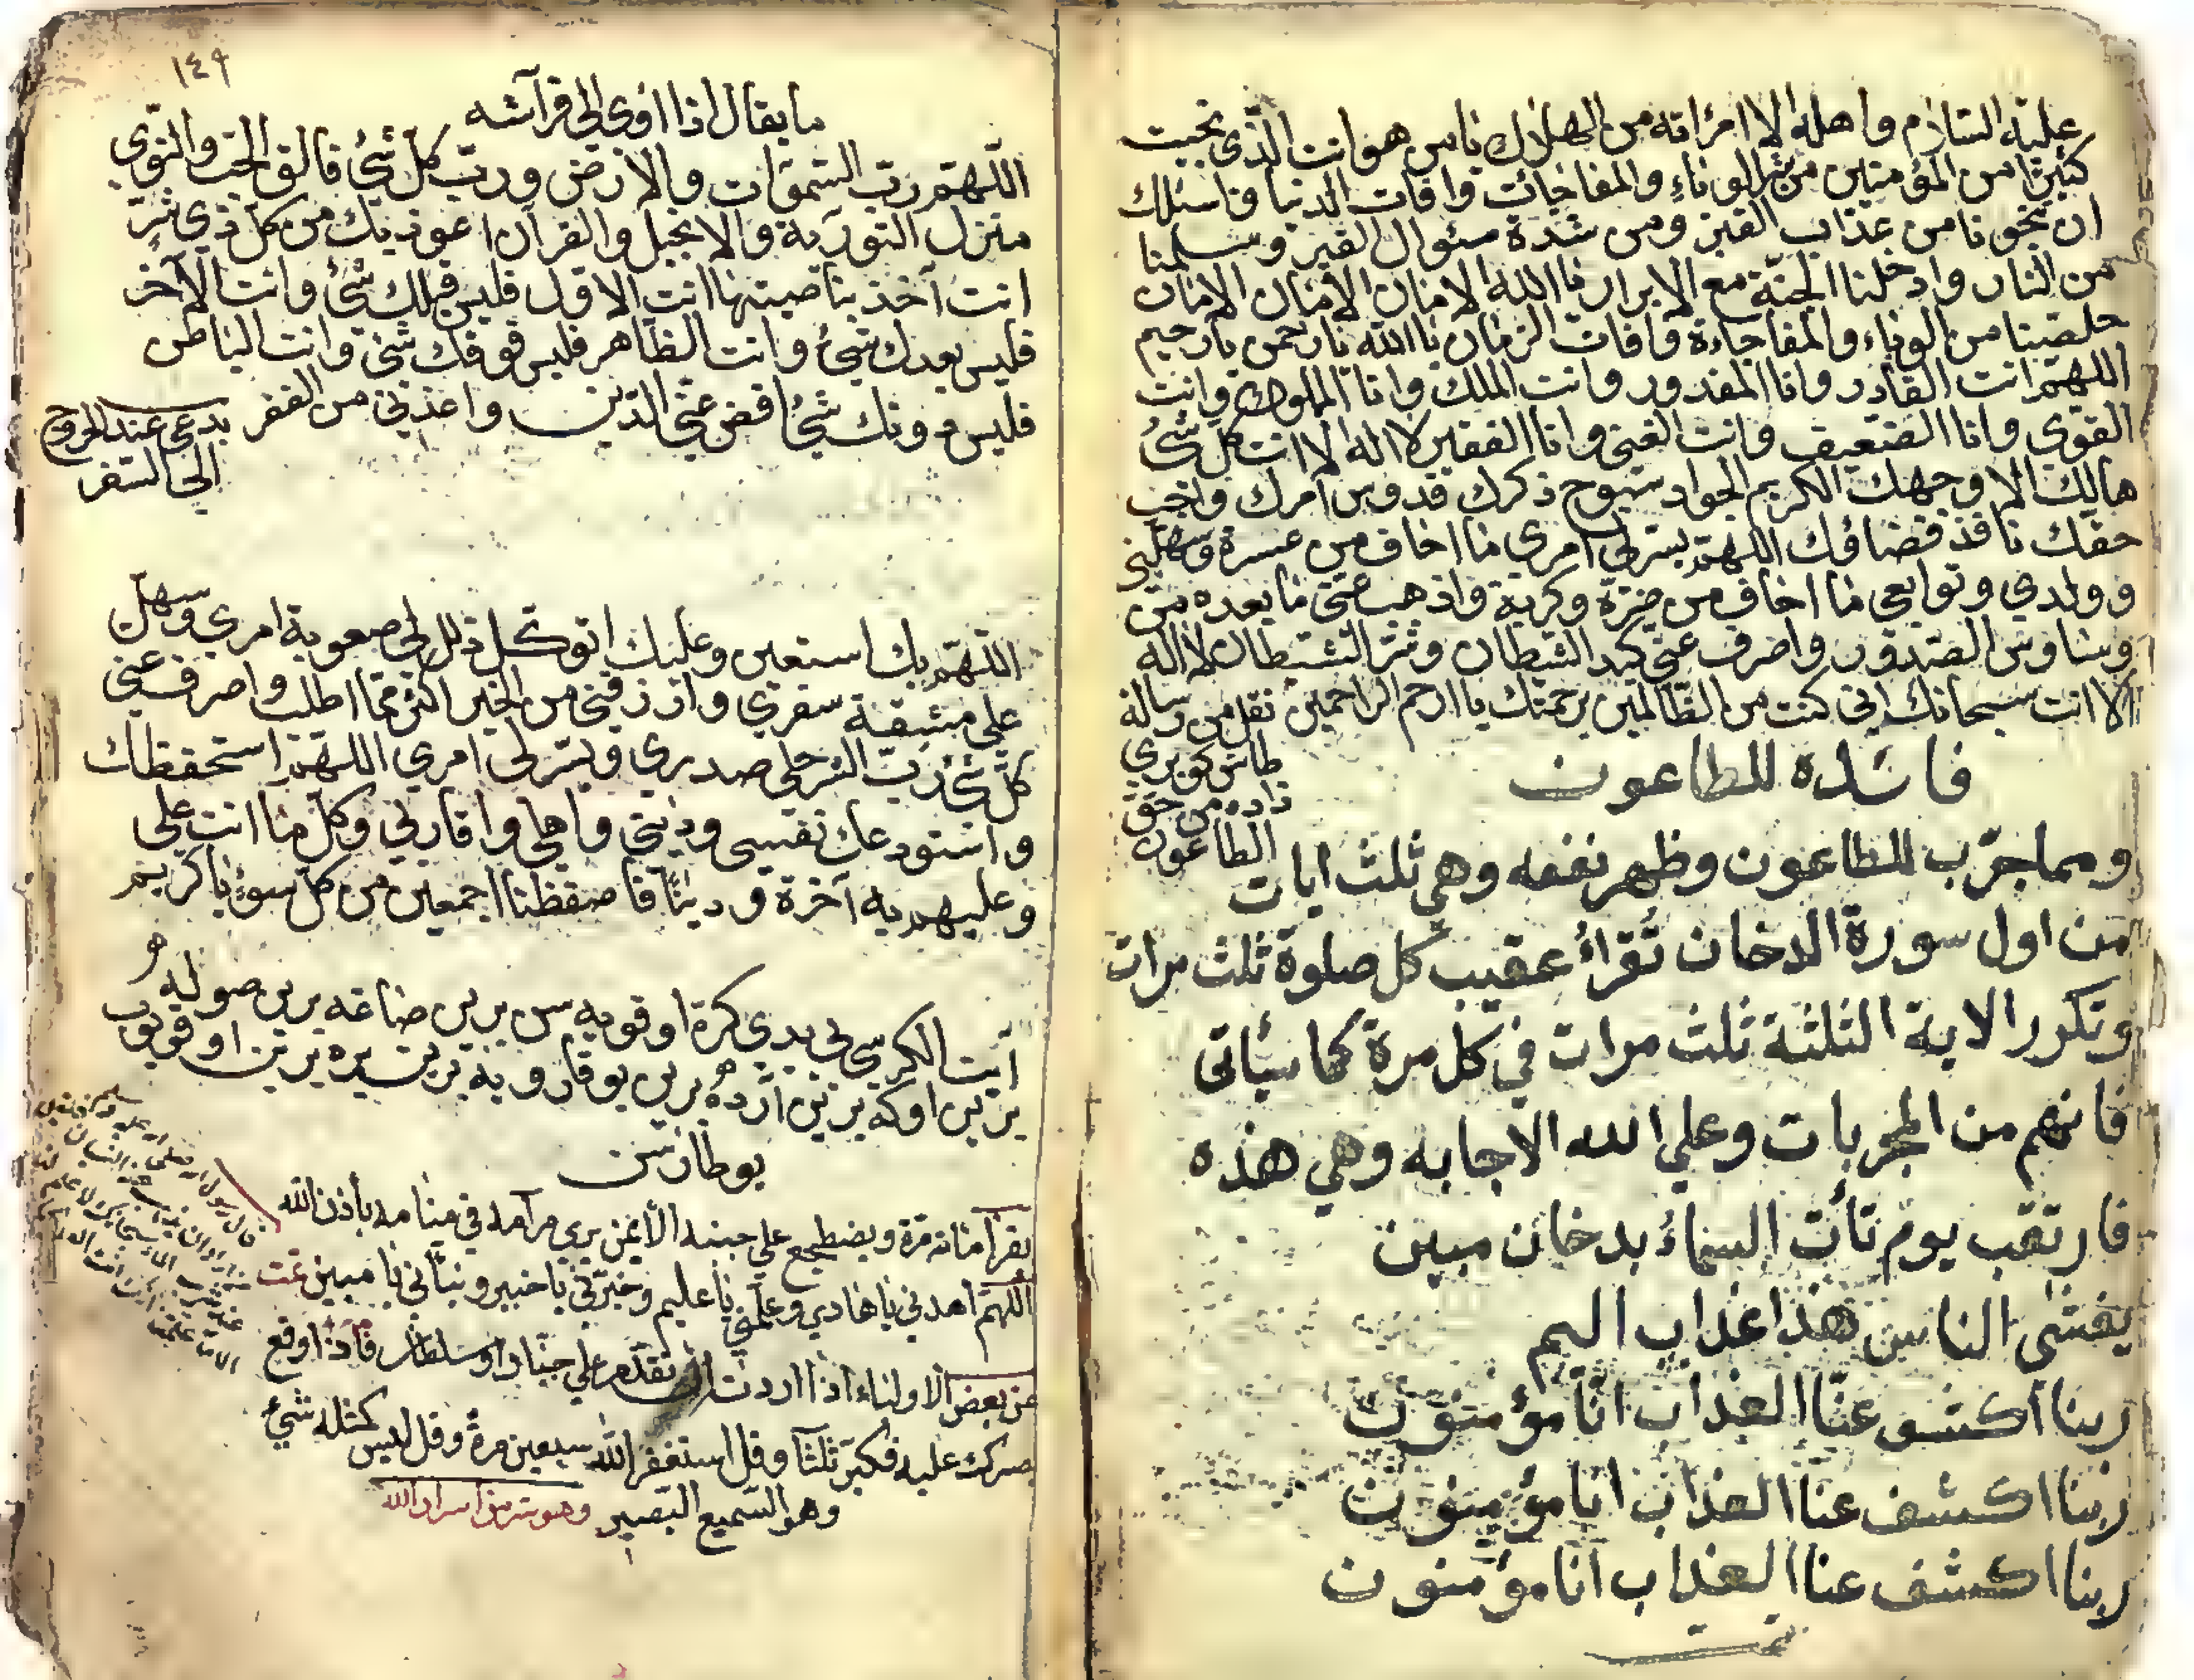 عليه السلام واهله الا امرأته من الهلاك يا من هو انت الذي نجيت
كثيرا من المؤمنين من شر الوباء والمفاجات وافات الدنيا واسئلك
ان تنجونا من عذاب القبر ومن شدة سئوال القبر وسلمنا
من النار وادخلنا الجنة مع الابرار يا الله الامان الامان الامان
خلصنا من الوباء والمفاجاءة وافات الزمان يا الله يا رحمن يا رحيم
اللهم انت القادر وانا المقدور وانت الملك وانا المملوك وانت
القوي وانا الضعيف وانت الغني وانا الفقير لا اله الا انت كل شئ
هالك الا وجهك الكريم الجواد سبوح ذكرك قدوس امرك واجب
حقك نافذ قضاؤك اللهم يسر لي امري ما اخاف من عسرة وسهل لي
وولدي وتوابعي ما اخاف من وكربة واذهب عني ما بعده من
وساوس الصدور واصرف عني كيد الشيطان وشر الشيطان لا اله
الا انت سبحانك اني كنت من الظالمين برحمتك يا ارحم الراحمين نقل من رسالة
طاش كوپري
زاده من حق
الطاعون
فائدة للطاعون
ومما جرّب للطاعون وظهر نفعه وهي ثلث ايات
من اول سورة الدخان تُقرأ عقيب كل صلوة ثلث مرات
وتكرر الاية الثلثة ثلث مرات في كل مرة كما سيأتي
فانهم من المجربات وعلي الله الاجابه وهي هذه
فارتقب يوم تأت السماءُ بدخان مبين
يغشي الناس هذا عذاب اليم
ربنا اكشف عنّا العذاب انّا مؤمنون
ربنا اكشف عنا العذاب انا مؤمنون
ربنا اكشف عنا العذاب انا مؤمنون
١٤٩
ما يقال اذا اوى الى فراشه
اللهم رب السموات والارض ورب كل شئ فالق الحب والنوى
منزل التورية والانجيل والقرآن اعوذ بك من كل ذي شر
انت آخذ بناصيتها انت الاول فليس قبلك شئ وانت الآخر
فليس بعدك شئ وانت الظاهر فليس فوقك شئ وانت الباطن
فليس دونك شئ اقض عني الدين واعذني من الفقر
يدعى عند الخروج
الى السفر
اللهم بك استعين وعليك اتوكل ذلل لي صعوبة امري وسهل
علي مشقة سفري وارزقني من الخير اكثر مما اطلب واصرف عني
كل شر رب اشرح لي صدري ويسر لي امري اللهم استحفظك
واستودعك نفسي وديني واهلي واقاربي وكل ما انت علي
وعليهم به آخرة ودنيا فاحفظنا اجمعين من كل سوء يا كريم
آيت الكرسي يدي كره اوقويه سن برين صاغه برين صوله
برين اوكه برين آرده برين يوقارويه برين يره برين اوقويوب
يوطارسن
يقرأ مائة مرة ويضطجع على جنبه الأيمن يرى مرامه في منامه بأذن الله
اللهم اهدني يا هادي وعلمني يا عليم وخبرني يا خبير ونبأني يا مبين تمت
عن بعض الاولياء اذا اردت ان تقدم على جبار او سلطان فاذا وقع
بصرك عليه فكبر ثلثا وقل استغفر الله سبعين مرة وقل ليس كمثله شئ
وهو السميع البصير وهو سر من اسرار الله